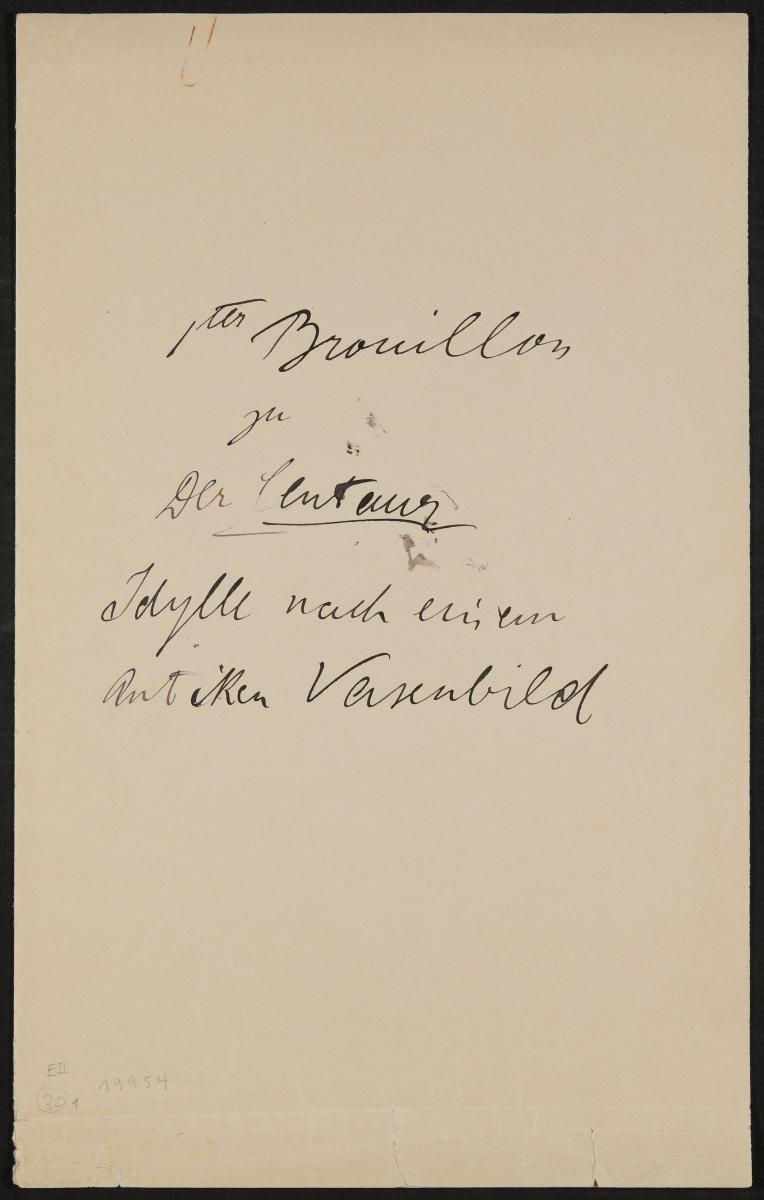 1ter Brouillon
zu
Der Centaur
Idylle nach einem
antiken Vasenbild
EII
30 1
19954